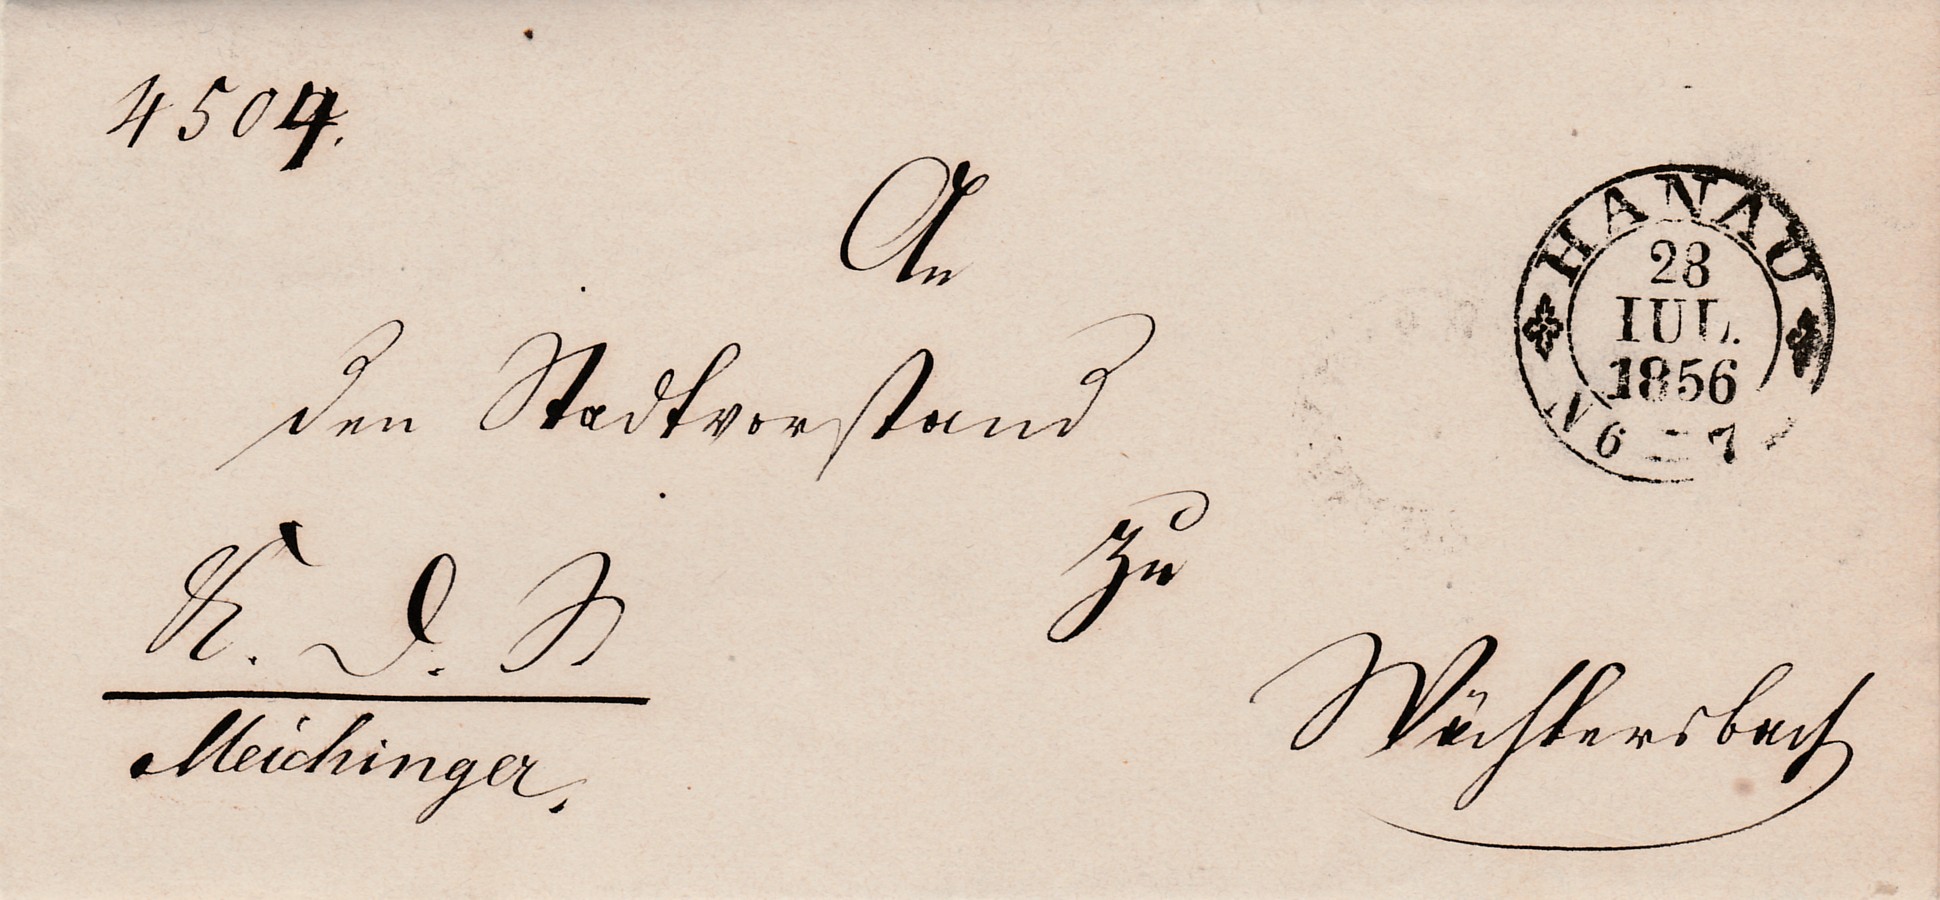 4504.
An
den Stadtvorstand
zu
Wächtersbach
K. D. S
Meichinger.
HANAU
28
IUL.
1856
N 6 — 7